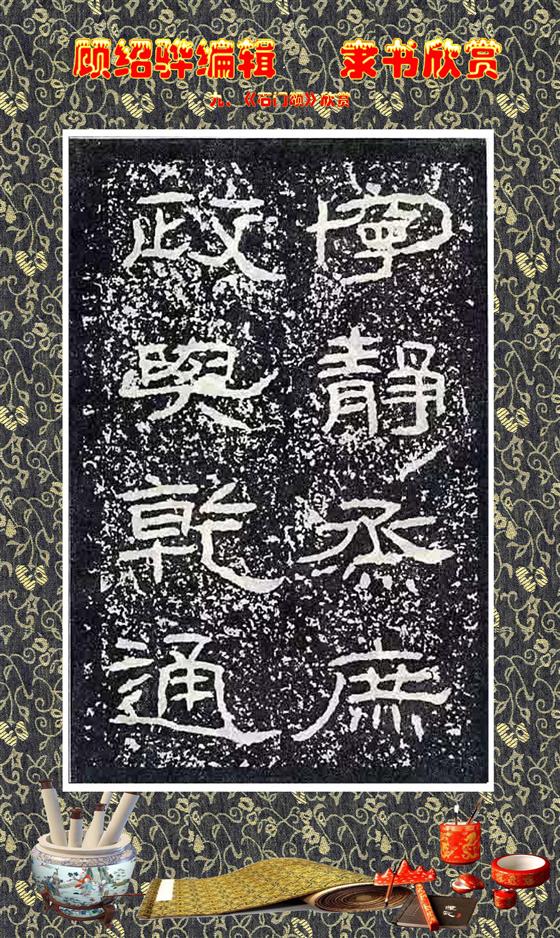 顾绍骅编辑 隶书欣赏
九、《石门颂》欣赏
寧靜烝庶
政與乾通